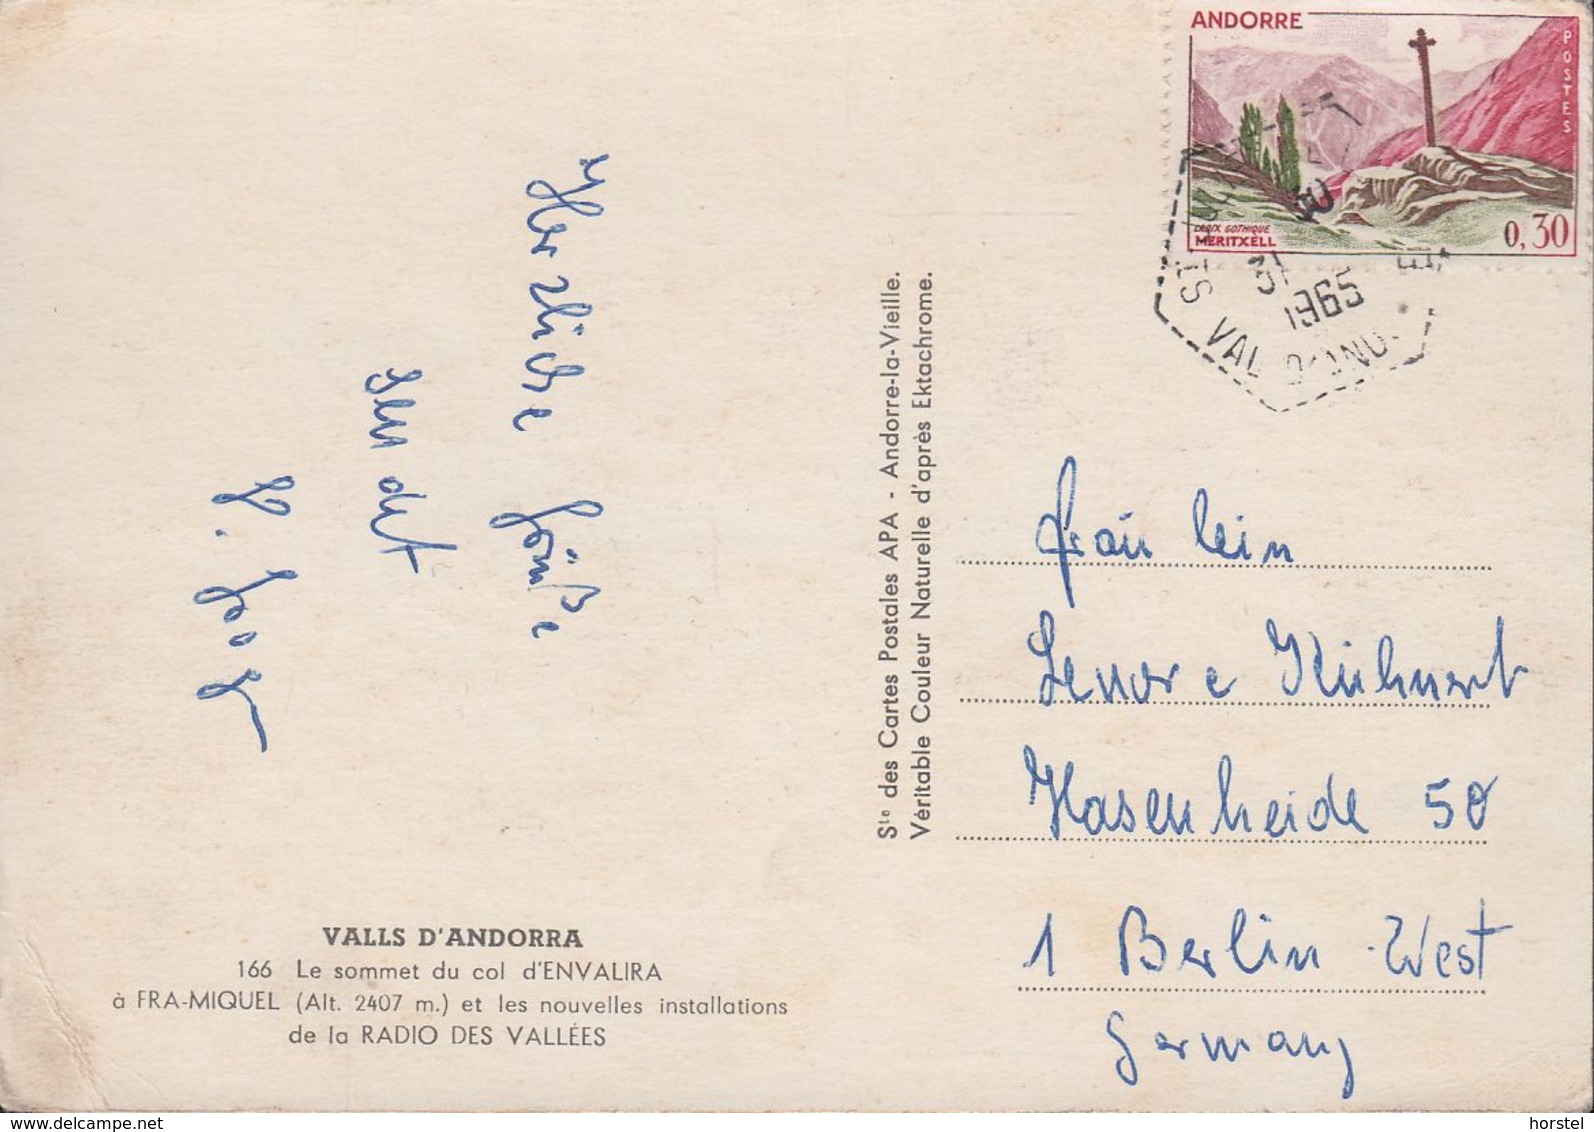 ANDORRE
POSTES
CROIX GOTHIQUE
MERITXELL
0,30
31
1965
VAL D'AND.
Herzliche Grüße
sendet
Ste des Cartes Postales APA - Andorre-la-Vieille.
Véritable Couleur Naturelle d'après Ektachrome.
Fräulein
Lenore Kühnert
Hasenheide 50
1 Berlin-West
Germany
VALLS D'ANDORRA
166 Le sommet du col d'ENVALIRA
à FRA-MIQUEL (Alt. 2407 m.) et les nouvelles installations
de la RADIO DES VALLÉES
delcampe.net
horstel